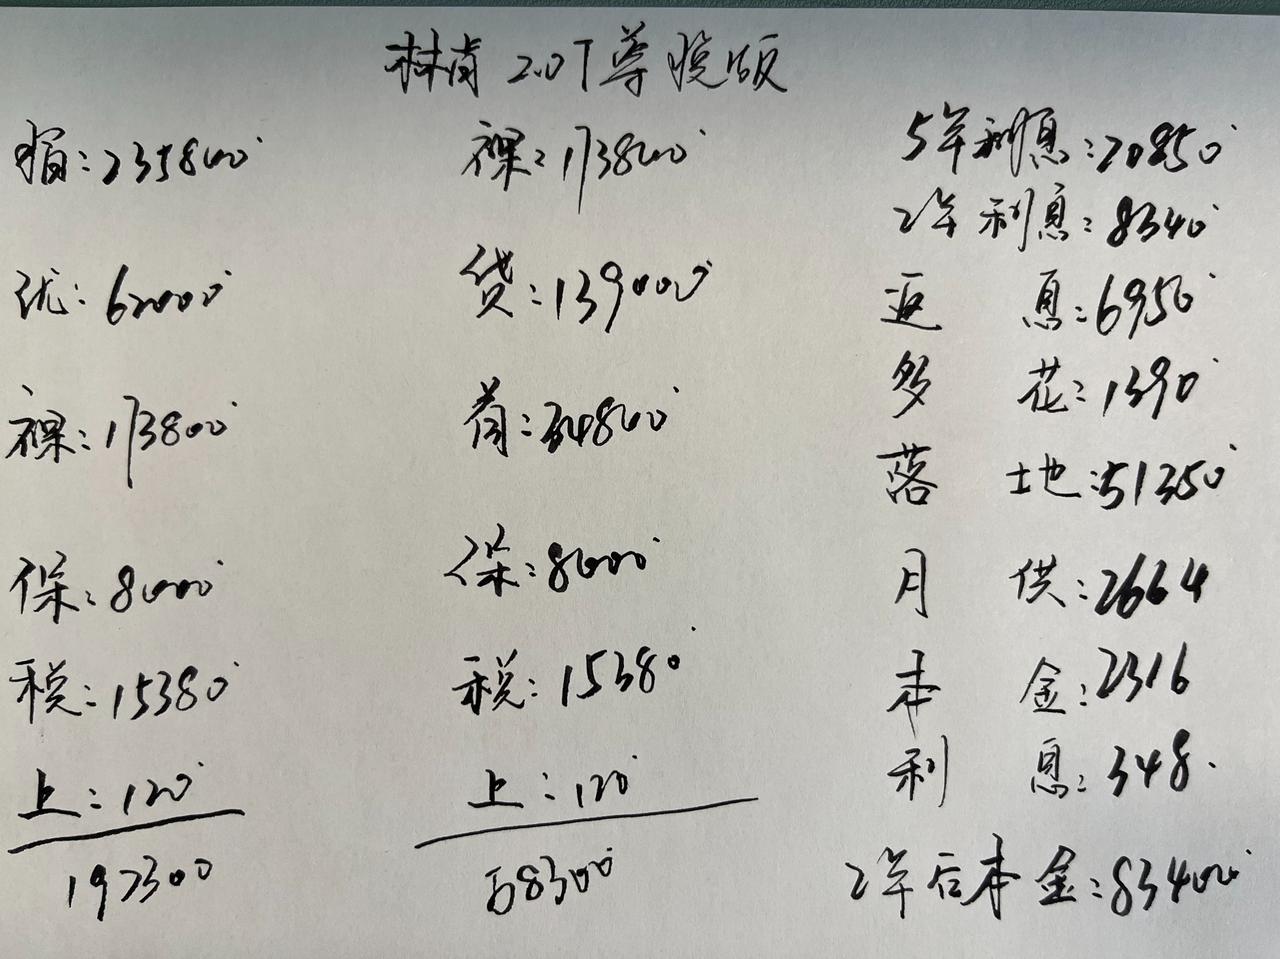 林肯 2.0T尊悦版
指:235800
优:62000
裸:173800
保:8000
税:15380
上:120
197300
裸:173800
贷:139000
首:34800
保:8000
税:15380
上:120
58300
5年利息:20850
2年利息:8340
返息:6950
多花:1390
落地:51350
月供:2664
本金:2316
利息:348
2年后本金:83400